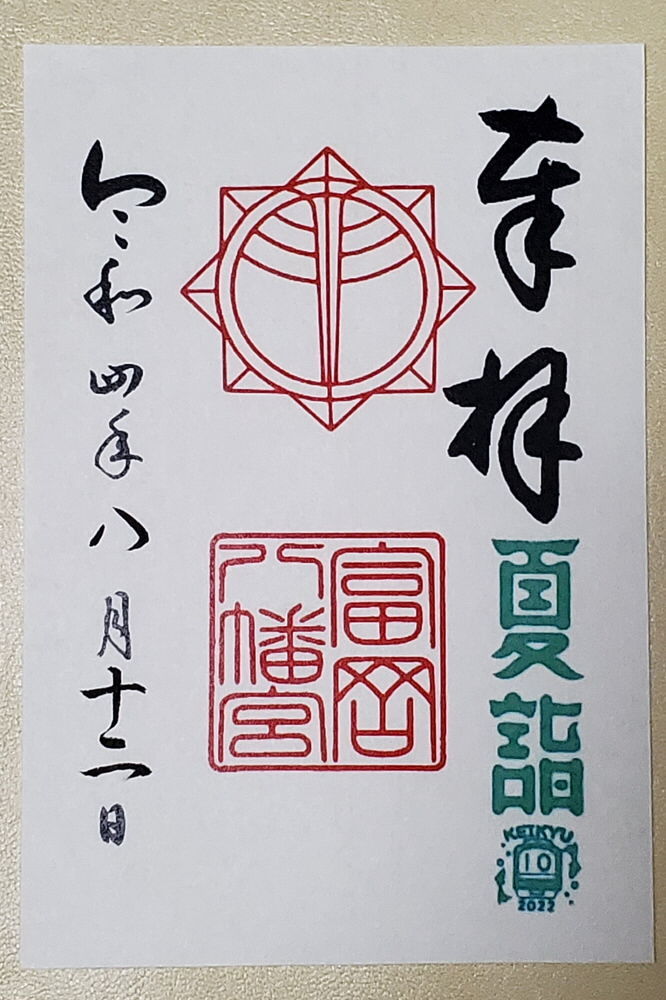 奉拝
夏詣
KEIKYU
10
2022
富岡
八幡宮
令和四年八月十二日